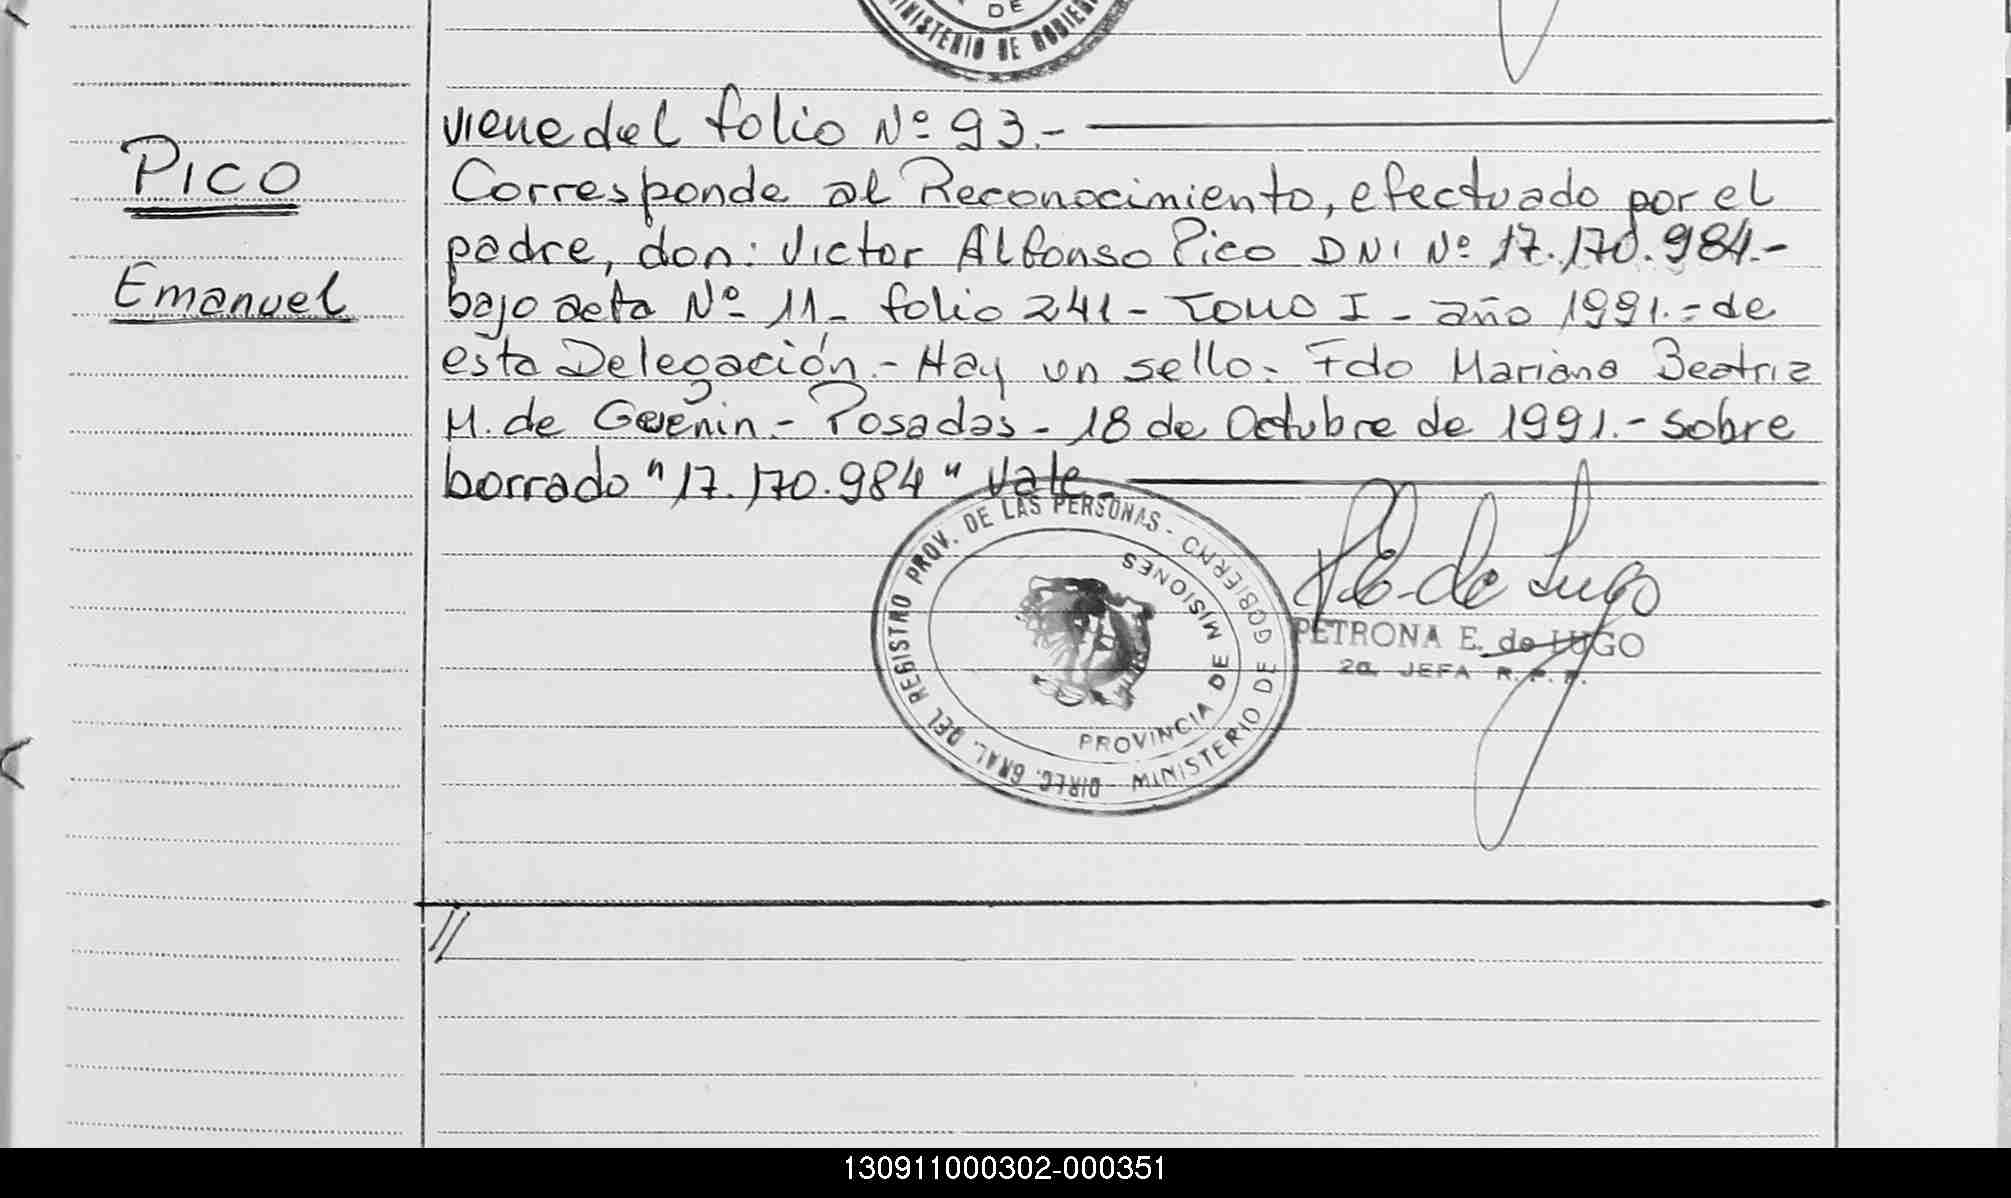 DE
MINISTERIO DE GOBIERNO
PICO
Emanuel
viene del folio Nº 93.-
Corresponde al Reconocimiento, efectuado por el
padre, don: Victor Alfonso Pico DNI Nº 17.170.984.-
bajo acta Nº 11- folio 241- Tomo I - año 1991.- de
esta Delegación.- Hay un sello- Fdo Mariana Beatriz
M. de Guenin.- Posadas- 18 de Octubre de 1991.- sobre
borrado "17.170.984" Vale-
DIREC. GRAL. DEL REGISTRO PROV. DE LAS PERSONAS - MINISTERIO DE GOBIERNO
PROVINCIA DE MISIONES
P.E. de Lugo
PETRONA E. de LUGO
2a. JEFA R. P. P.
//
130911000302-000351